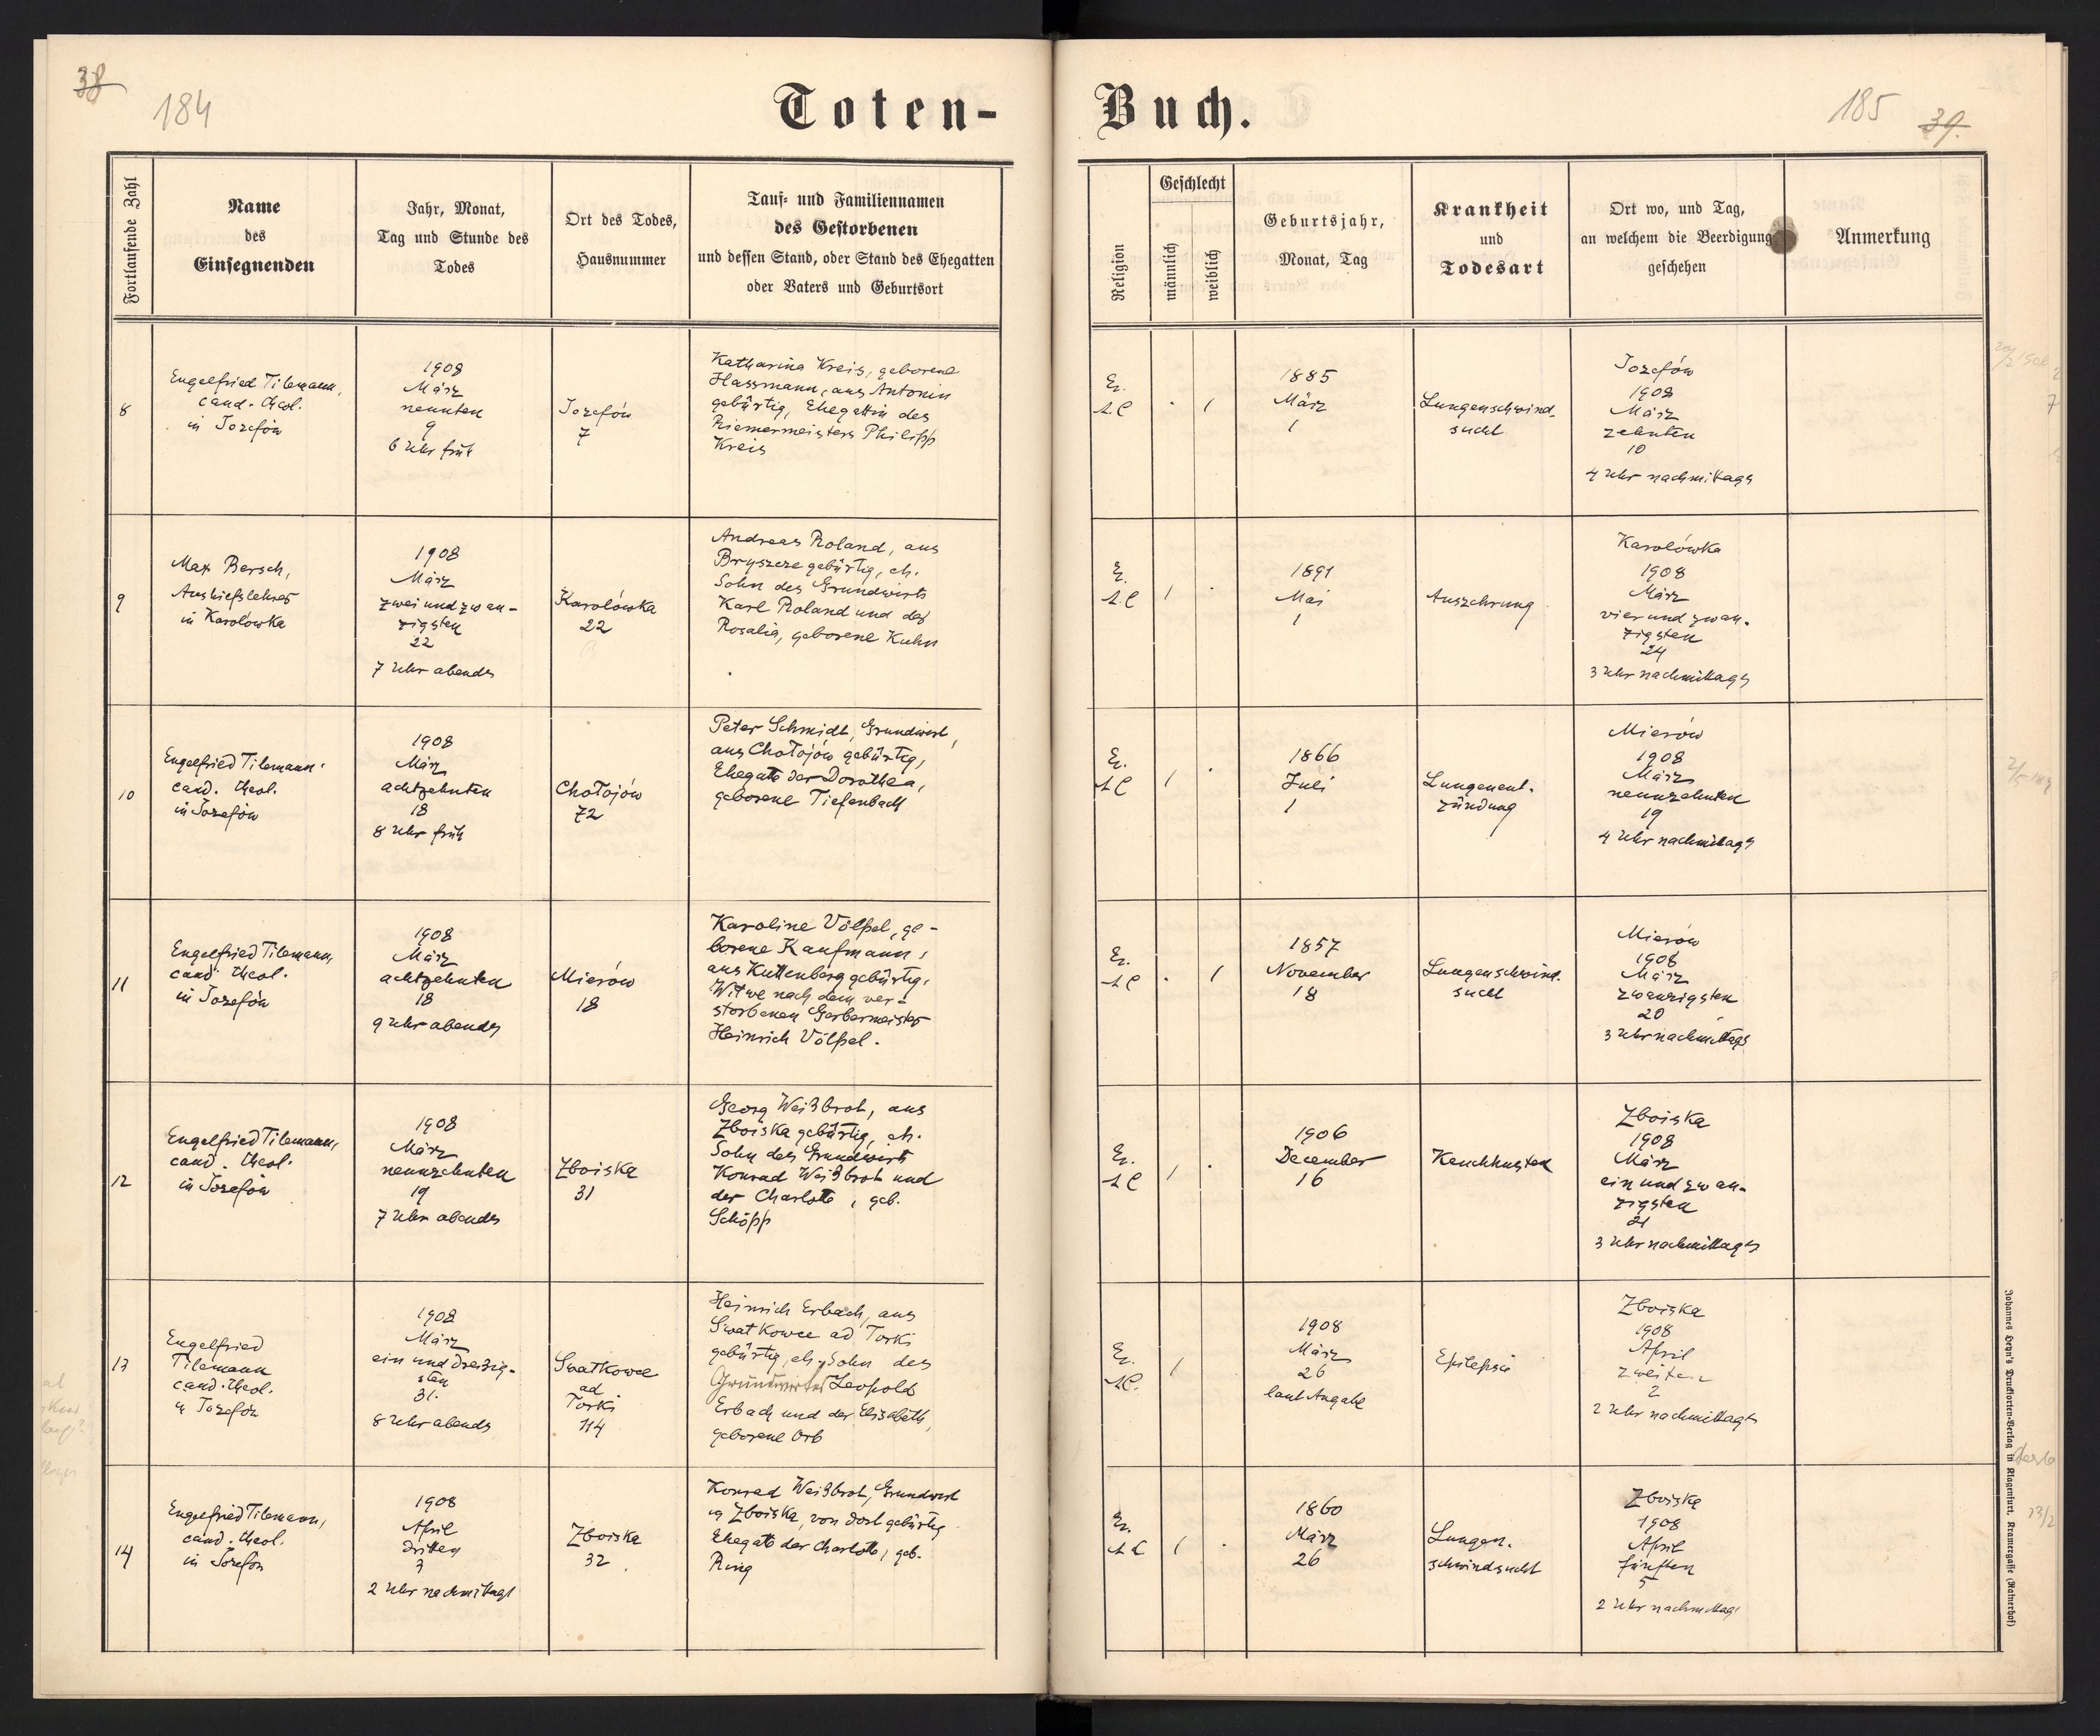 38
184
Toten-
Fortlaufende Zahl
Name
des
Einsegnenden
Jahr, Monat,
Tag und Stunde des
Todes
Ort des Todes,
Hausnummer
Tauf- und Familiennamen
des Gestorbenen
und dessen Stand, oder Stand des Ehegatten
oder Vaters und Geburtsort
8
Engelfried Tilemann,
cand. theol.
in Josefów
1908
März
neunten
9
6 Uhr früh
Josefów
7
Katharina Kreis, geborene
Hassmann, aus Antonin
gebürtig, Ehegattin des
Riemermeisters Philipp
Kreis
9
Max Bersch,
Aushilfslehrer
in Karolówka
1908
März
zwei und zwan-
zigsten
22
7 Uhr abends
Karolówka
22
Andreas Roland, aus
Bryszcze gebürtig, eh.
Sohn des Grundwirts
Karl Roland und der
Rosalia, geborene Kuhn
10
Engelfried Tilemann
cand. theol.
in Josefów
1908
März
achtzehnten
18
8 Uhr früh
Chołojów
72
Peter Schmidt, Grundwirt,
aus Chołojów gebürtig,
Ehegatte der Dorothea,
geborene Tiefenbach
11
Engelfried Tilemann,
cand. theol.
in Josefów
1908
März
achtzehnten
18
9 Uhr abends
Mierów
18
Karoline Völpel, ge-
borene Kaufmann,
aus Kuttenberg gebürtig,
Witwe nach dem ver-
storbenen Gerbermeister
Heinrich Völpel.
12
Engelfried Tilemann,
cand. theol.
in Josefów
1908
März
neunzehnten
19
7 Uhr abends
Zboiska
31
Georg Weißbrot, aus
Zboiska gebürtig, eh.
Sohn des Grundwirt
Konrad Weißbrot und
der Charlotte, geb.
Schöpp
13
Engelfried
Tilemann
cand. theol.
in Josefów
1908
März
ein und dreißig-
sten
31.
8 Uhr abends
Swatkowce
ad
Torki
114
Heinrich Erbach, aus
Swatkowce ad Torki
gebürtig, eh. Sohn des
Grundwirtes Leopold
Erbach und der Elisabeth,
geborene Orb
14
Engelfried Tilemann,
cand. theol.
in Josefów
1908
April
dritten
3
2 Uhr nachmittags
Zboiska
32
Konrad Weißbrot, Grundwirt
in Zboiska, von dort gebürtig
Ehegatte der Charlotte, geb.
Ring
Buch.
185
39.
Religion
Geschlecht
männlich
weiblich
Geburtsjahr,
Monat, Tag
Krankheit
und
Todesart
Ort wo, und Tag,
an welchem die Beerdigung
geschehen
Anmerkung
Ev.
A.C
1885
März
1
Lungenschwind-
sucht
Josefów
1908
März
zehnten
10
4 Uhr nachmittags
Ev.
A.C
1891
Mai
1
Auszehrung
Karolówka
1908
März
vier und zwan-
zigsten
24
3 Uhr nachmittags
Ev.
A C
1866
Juli
1
Lungenent-
zündung
Mierów
1908
März
neunzehnten
19
4 Uhr nachmittags
Ev.
A C
1857
November
18
Lungenschwind-
sucht
Mierów
1908
März
zwanzigsten
20
3 Uhr nachmittags
Ev.
A C
1906
December
16
Keuchhusten
Zboiska
1908
März
ein und zwan-
zigsten
21
3 Uhr nachmittags
Ev.
A C.
1908
März
26
laut Angabe
Epilepsie
Zboiska
1908
April
zweiten
2
2 Uhr nachmittags
Ev.
A C
1860
März
26
Lungen-
schwindsucht
Zboiska
1908
April
fünften
5
2 Uhr nachmittags
Johannes Heyn's Drucksorten-Verlag in Klagenfurt, Kramergasse (Rainerhof)